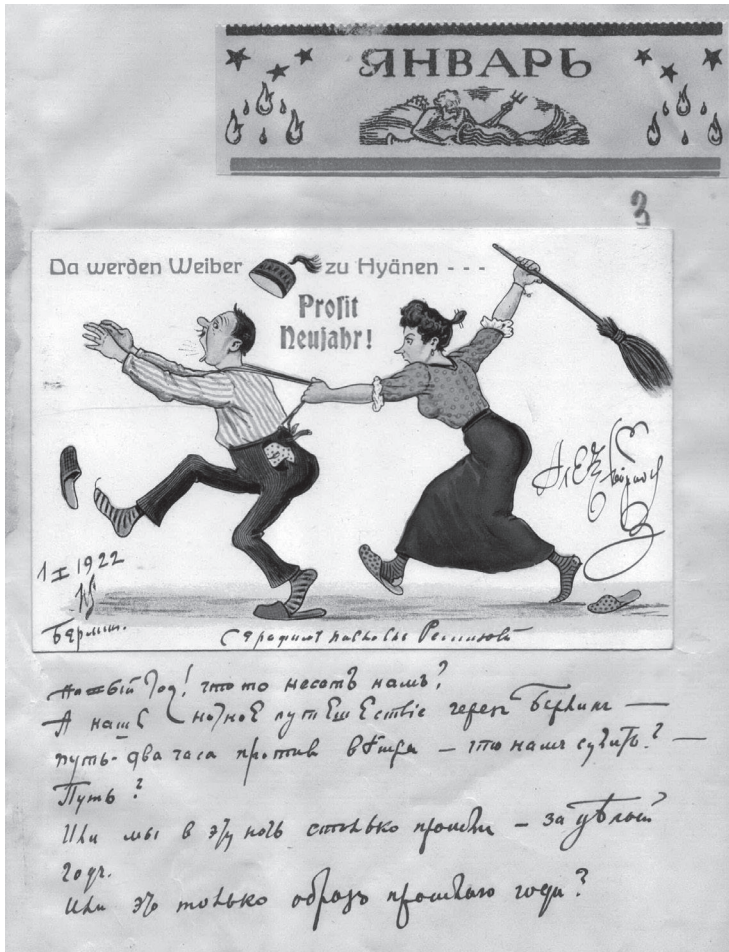 ЯНВАРЬ
3
Da werden Weiber zu Hyänen - - -
Prosit
Neujahr!
1 I 1922
Берлин.
Серафиме Павловне Ремизовой
Новый Год! что то несетъ намъ?
А наше ночное путешествiе через Берлин —
путь-два часа против вѣтра — что намъ сулитъ? —
Путь?
Или мы в эту ночь столько прошли — за цѣлый
годъ.
Или это только образъ прошлаго года?